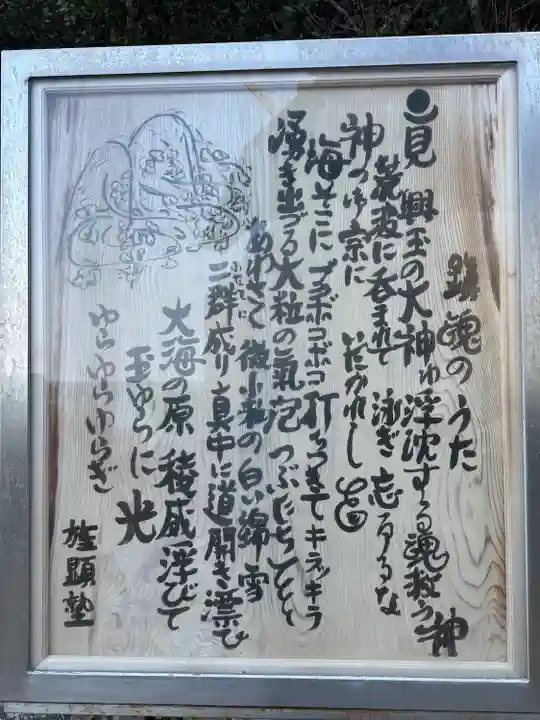 鎮魂のうた
見 興玉の大神 浮沈する魂救う神
荒波に呑まれて 泳ぎ忘るるな
神のみ京に いだかれし
海そこに ブクボコボコ 打ちつきて キラッキラ
湧き出づる大粒の氣泡 つぶだちてとと
あわさて 微小粒の白い綿雪
二群成り 真中に道開き漂ひ
大海の原 稜威浮びて
玉ゆらに 光
ゆらゆらゆらぎ
顕塾